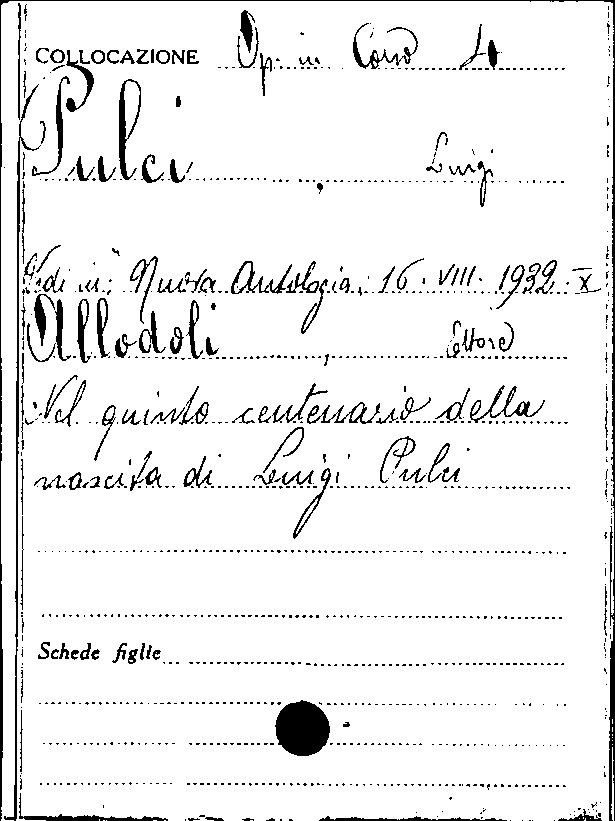 COLLOCAZIONE Op. in Corso 4
Pulci, Luigi
Vedi in: "Nuova Antologia, 16. VIII. 1932. X
Allodoli, Ettore
Nel quinto centenario della
nascita di Luigi Pulci
Schede figlie